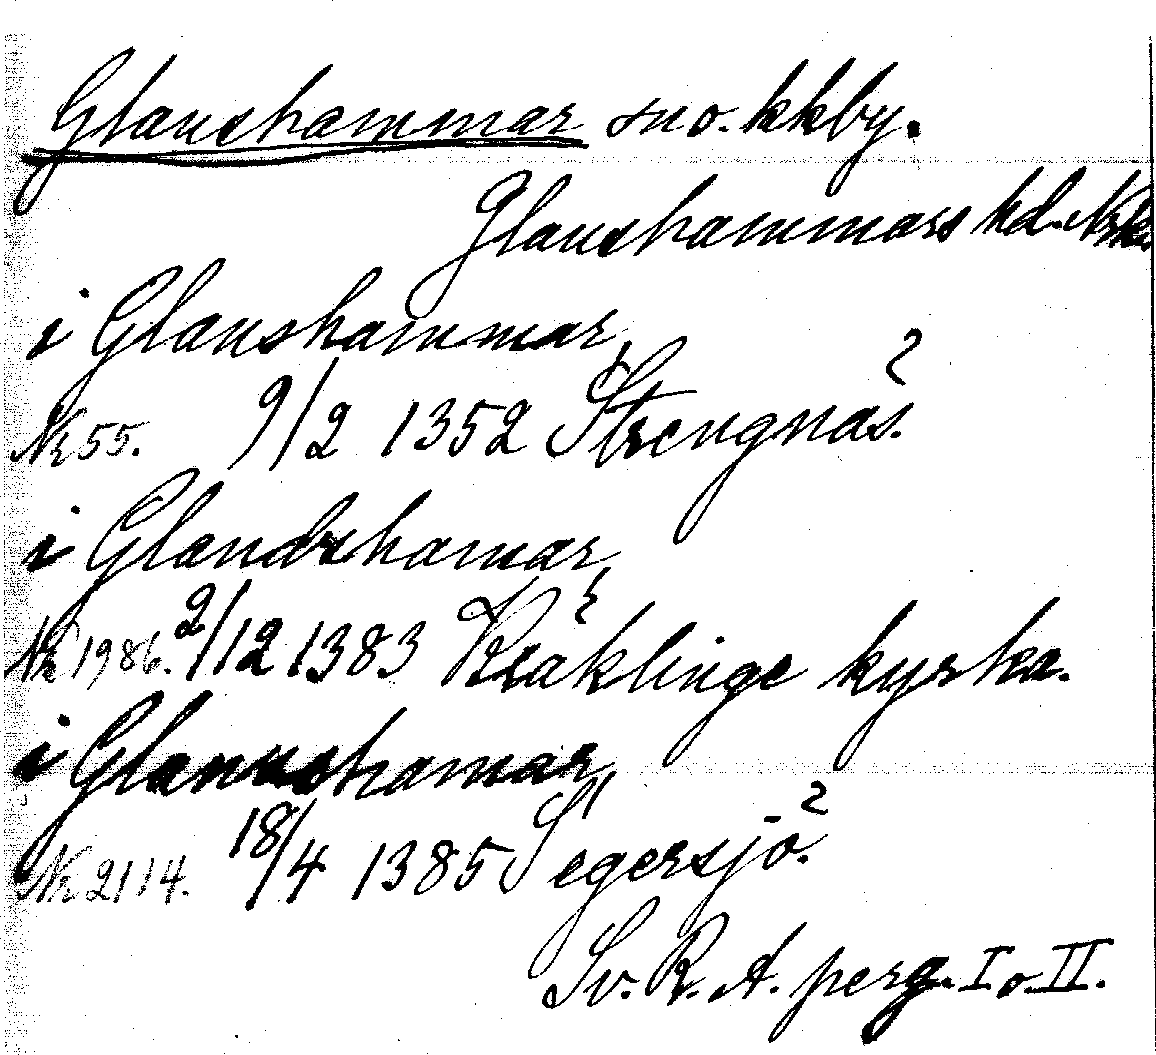 Glanshammar sn o. kkby.
Glanshammars hd. Nrke
i Glanshammar,
Nr 55. 9/2 1352 Strengnäs.
i Glandzhamar,
Nr 1986. 2/12 1383 Kräklinge kyrka.
i Glannshamar,
Nr 2114. 18/4 1385 Segersjö.
Sv. R. A. perg. I o. II.